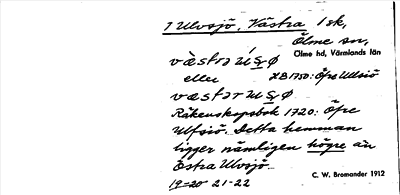 1 Ulvsjö, Västra 1 sk,
Ölme sn,
Ölme hd, Värmlands län
eller JB 1750: Öfre Ulfsiö
Räkenskapsbok 1720: Öfre
Ulfsiö. Detta hemman
ligger nämligen högre än
Östra Ulvsjö.
C. W. Bromander 1912
19-20 21-22